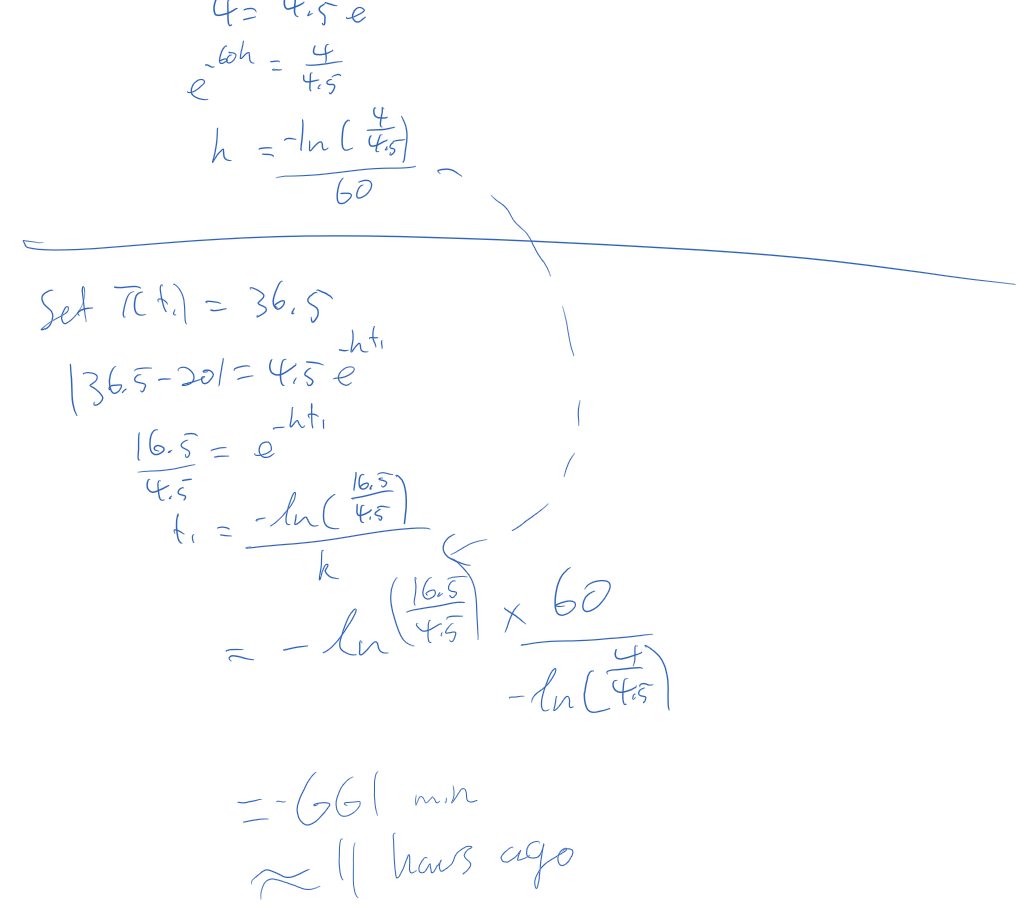 4 = 4.5 e
e^{-60k} = \frac{4}{4.5}
k = \frac{-ln(\frac{4}{4.5})}{60}
Set T(t₁) = 36.5
|36.5-20| = 4.5 e^{-kt₁}
\frac{16.5}{4.5} = e^{-kt₁}
t₁ = \frac{-ln(\frac{16.5}{4.5})}{k}
= -ln(\frac{16.5}{4.5}) × \frac{60}{-ln(\frac{4}{4.5})}
= -661 min
≈ 11 hours ago